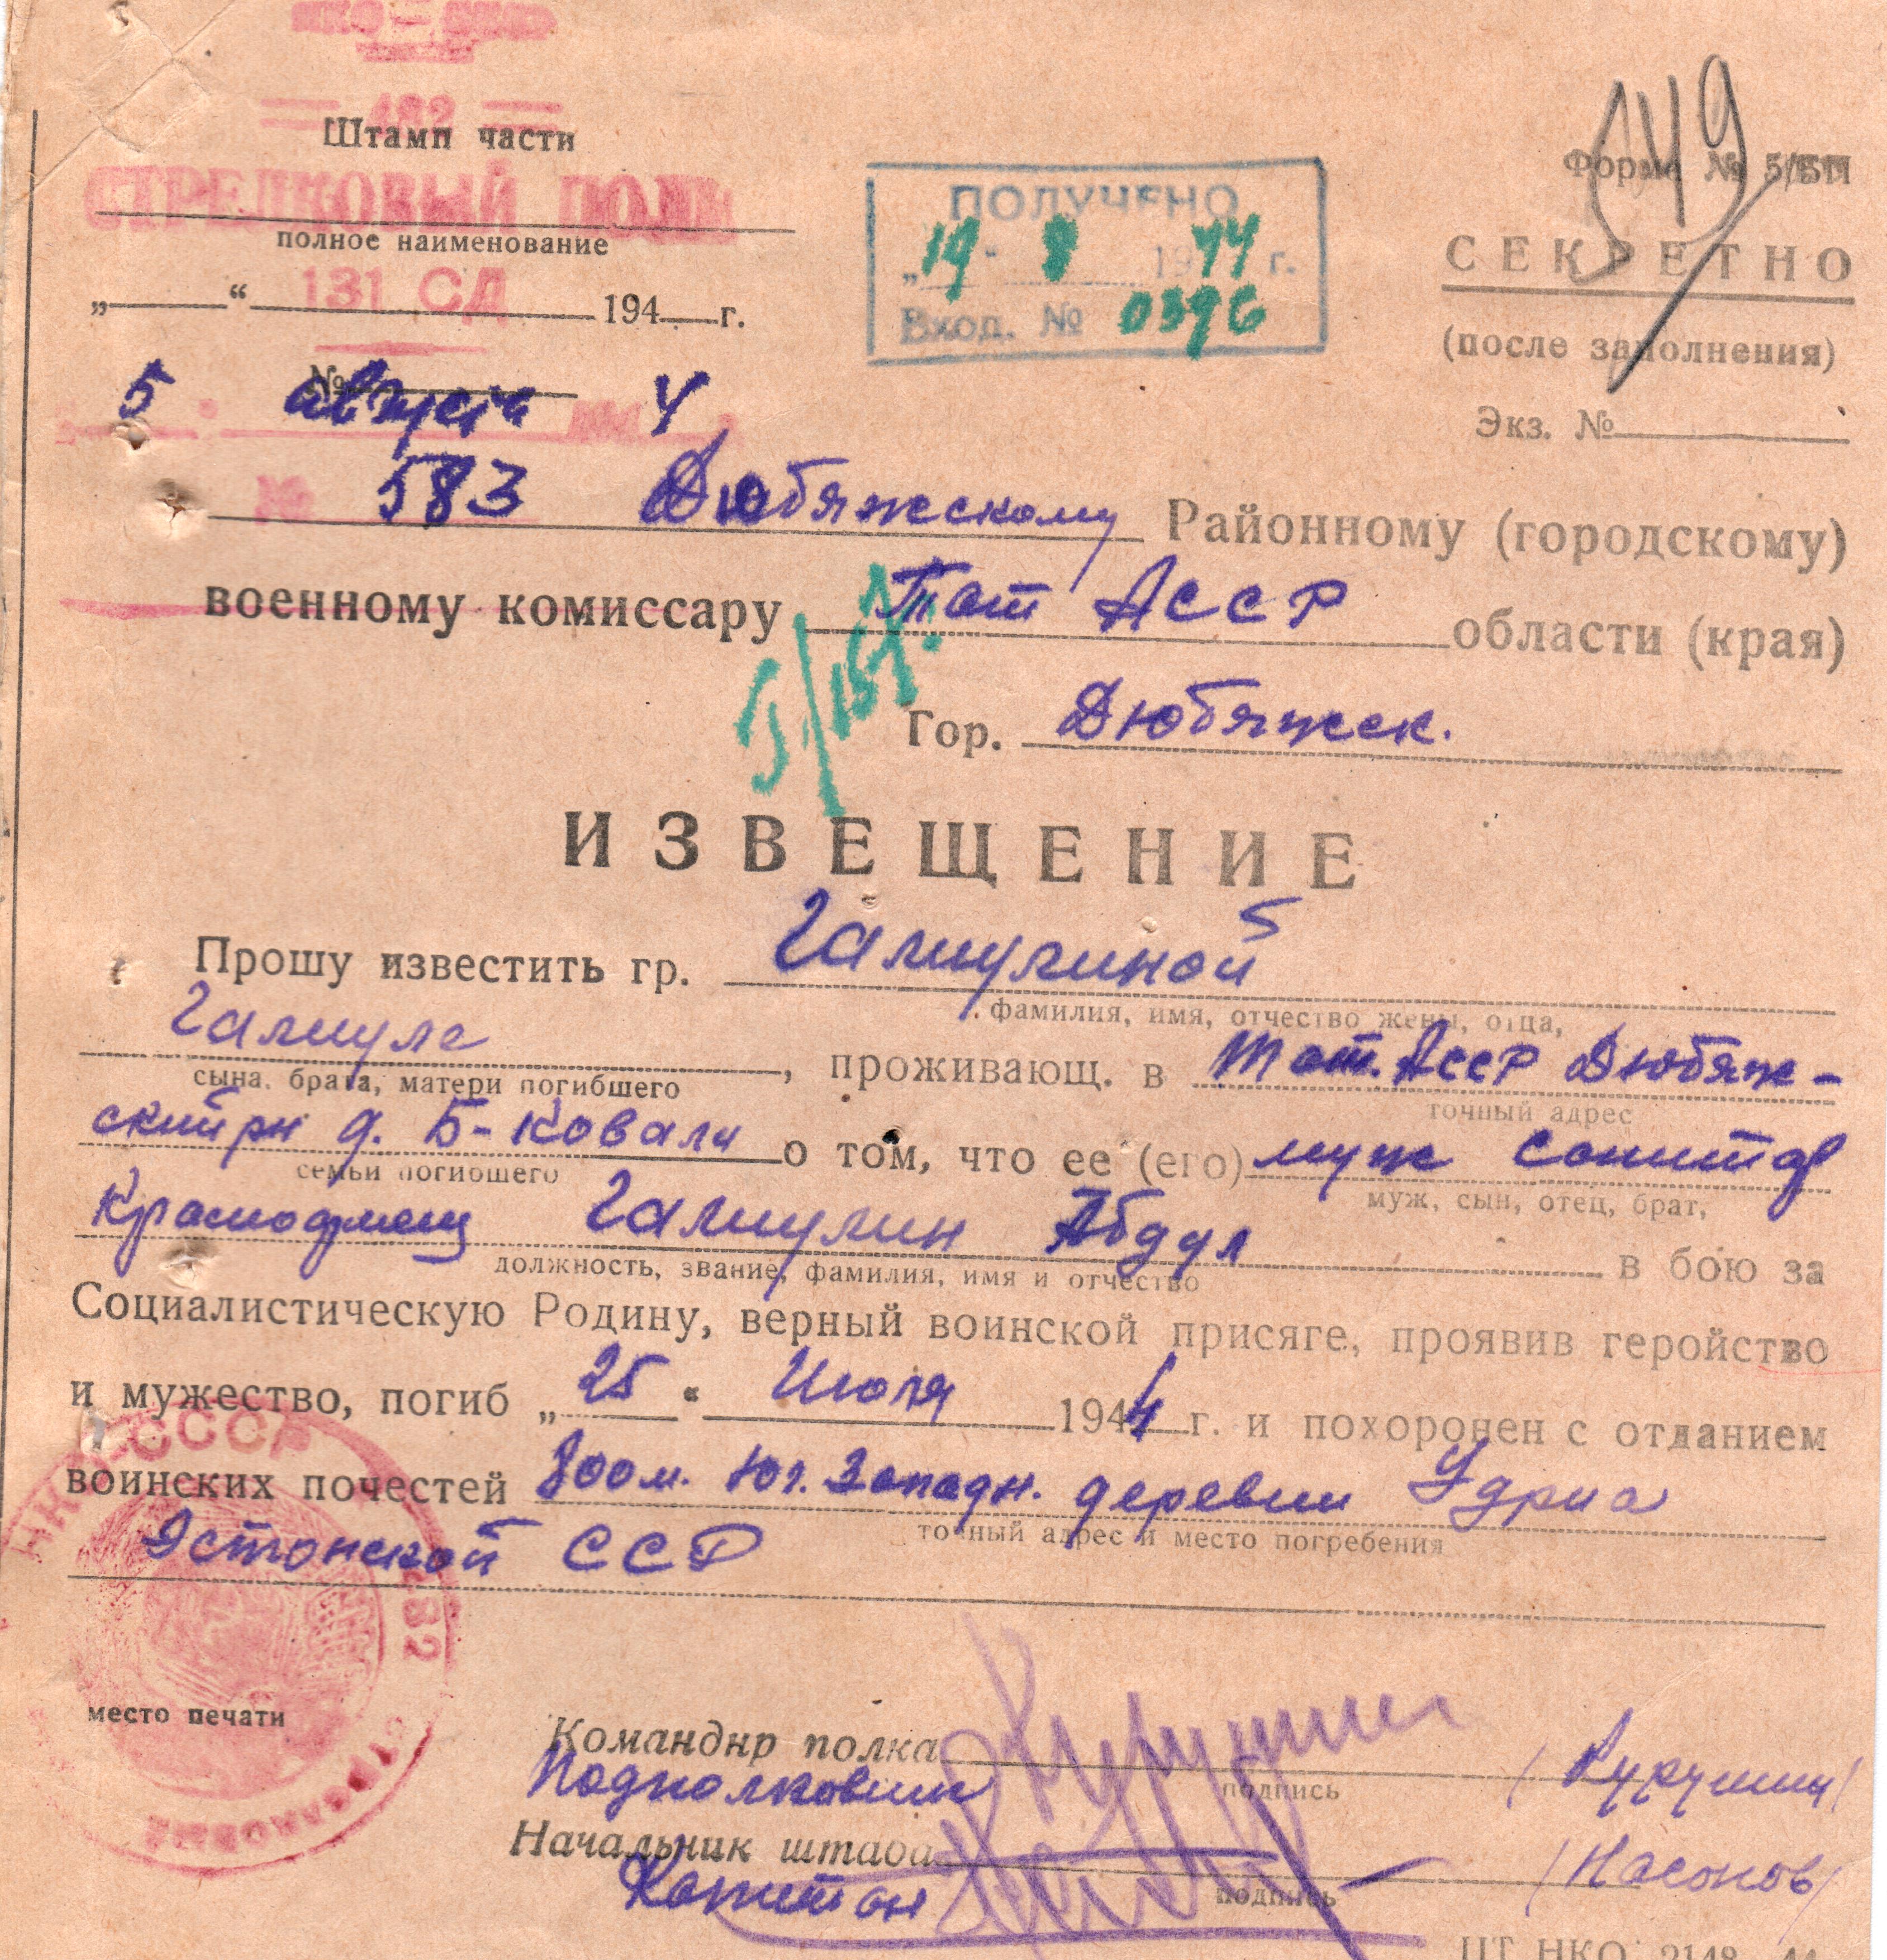 НКО — СССР
482
Штамп части
СТРЕЛКОВЫЙ ПОЛК
полное наименование
131 СД
„ “ 194 г.
№
5 августа 4
№ 583
ПОЛУЧЕНО
„19" 8 1944 г.
Вход. № 0396
149
Форма № 5/БП
СЕКРЕТНО
(после заполнения)
Экз. №
Дюбяжскому Районному (городскому)
военному комиссару Тат АССР области (края)
Гор. Дюбяжск.
ИЗВЕЩЕНИЕ
Прошу известить гр. Галиулиной
фамилия, имя, отчество жены, отца,
Галиуле, проживающ. в Тат. АССР Дюбяж-
сына, брата, матери погибшего
точный адрес
ский рн д. Б-Ковали о том, что ее (его) муж санитар
семьи погибшего
муж, сын, отец, брат,
Красноармеец Галиулин Абдул в бою за
должность, звание, фамилия, имя и отчество
Социалистическую Родину, верный воинской присяге, проявив геройство
и мужество, погиб „25“ Июля 1944 г. и похоронен с отданием
воинских почестей 800 м. Юг. Западн. деревни Удриа
точный адрес и место погребения
Эстонской ССР
НКО СССР
482
СТРЕЛКОВЫЙ
место печати
Командир полка
Подполковник
подпись
Начальник штаба
Капитан
подпись
/Насонов/
ЦТ НКО 2148